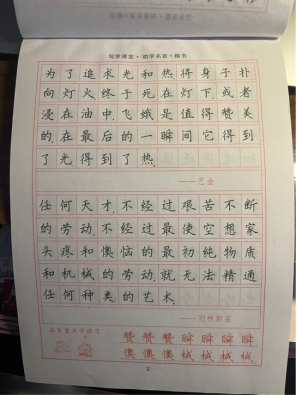 写字课堂·励学名言·楷书
为了追求光和热，将身子扑
向灯火，终于死在灯下，或者
浸在油中，飞蛾是值得赞美
的，在最后的一瞬间它得到
了光，得到了热。
——巴金
任何天才，不经过艰苦不断
的劳动，不经过最使空想家
头疼和懊恼的最初纯物质
和机械的劳动，就无法精通
任何种类的艺术。
——别林斯基
赞赞赞瞬瞬瞬瞬
懊懊懊械械械械
2